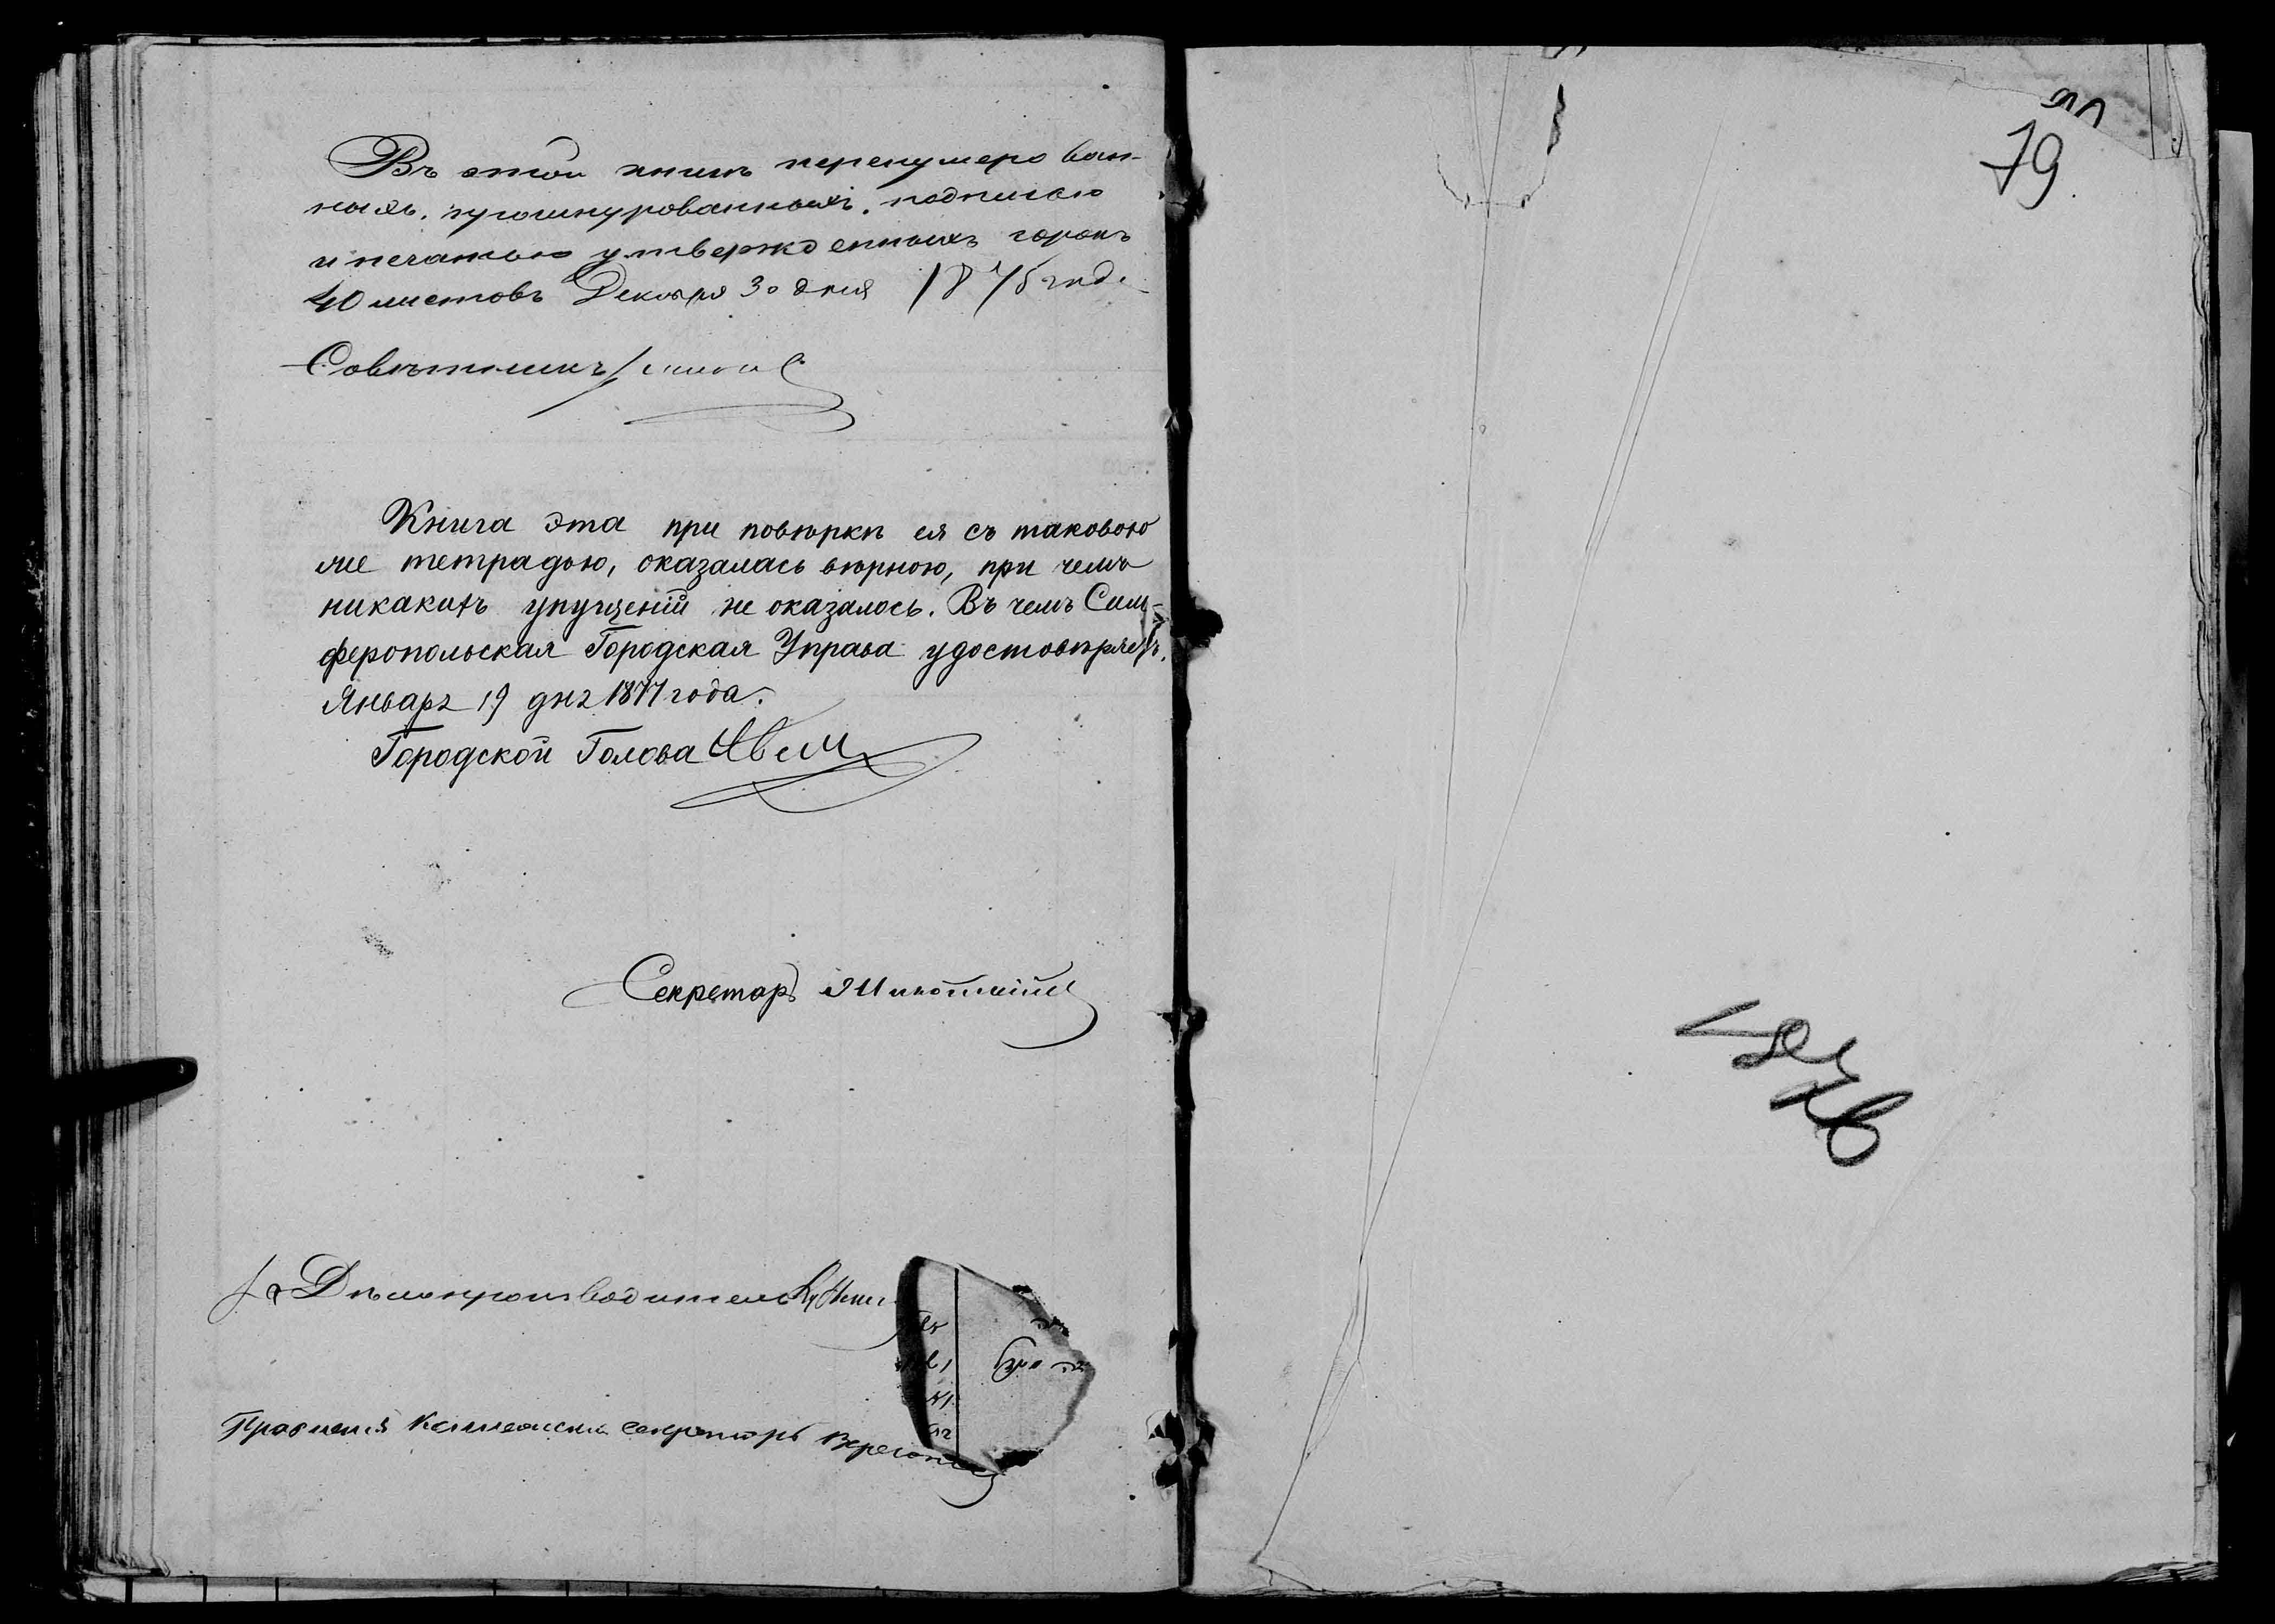 Въ этой книгѣ перенумерован-
ныхъ, прошнурованныхъ, подписью
и печатью утвержденныхъ сорокъ
40 листовъ Декабря 30 дня 1875 года
Совѣтникъ
Книга эта при повѣркѣ ея съ таковою
же тетрадью, оказалась вѣрною, при чемъ
никакихъ упущеній не оказалось. Въ чемъ Сим-
феропольская Городская Управа удостовѣряетъ.
Января 19 дня 1877 года.
Городской Голова
Секретарь
Дѣлопроизводитель
Правленія Коллежскій Секретарь
79